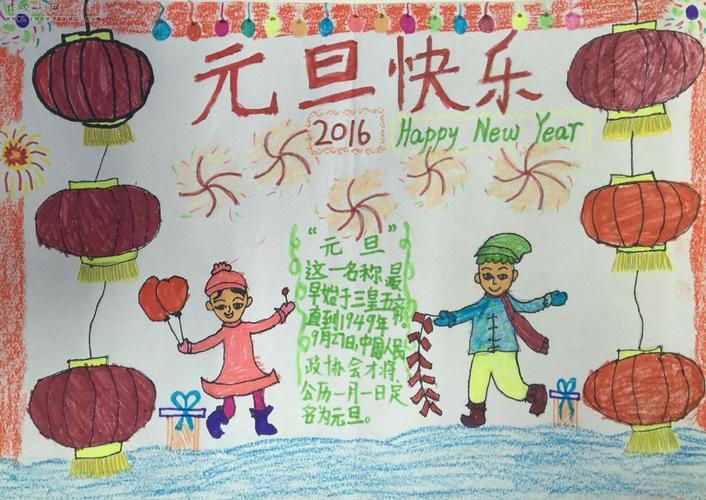 元旦快乐
2016 Happy New Year
“元旦”
这一名称最
早始于三皇五帝。
直到1949年
9月27日,中国人民
政协会才将
公历一月一日定
名为元旦。